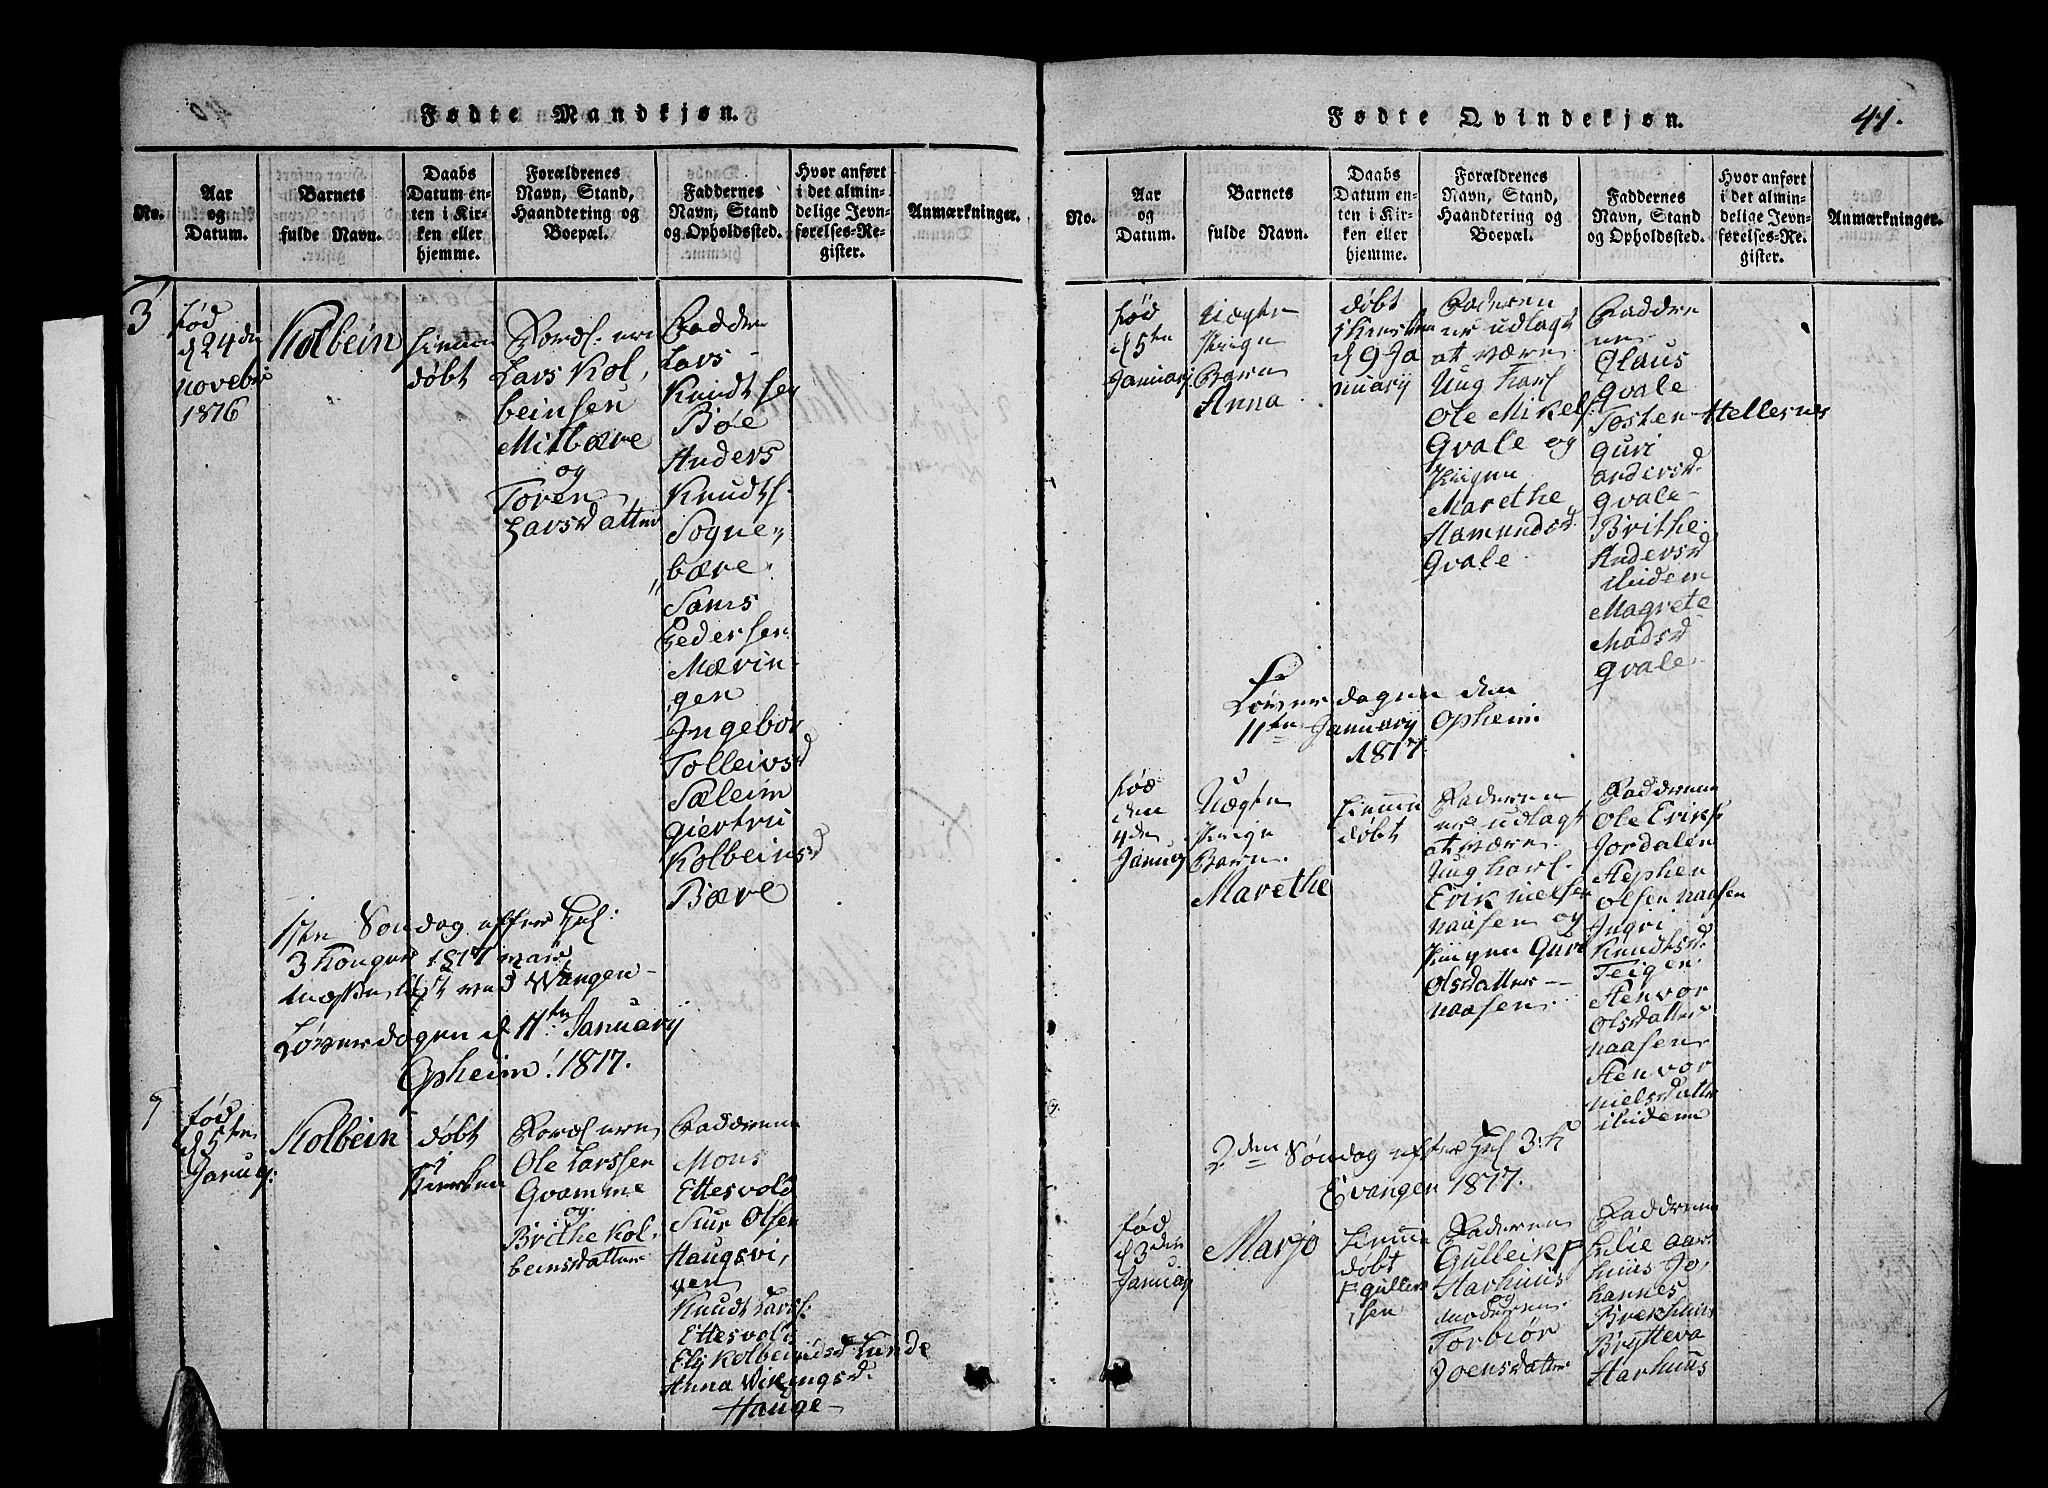 Fødte Mandkjøn.
No.
Aar
og
Datum.
Barnets
fulde Navn.
Daabs
Datum en-
ten i Kir-
ken eller
hjemme.
Forældrenes
Navn, Stand,
Haandtering og
Boepæl.
Faddernes
Navn, Stand
og Opholdssted.
Hvor anført
i det almin-
delige Jevn-
førelses-Re-
gister.
Anmærkninger.
3
fød
d 24de
novebr
1816
Kolbein
hiemme
døbt
Foræl: ere
Lars Kol,
beinsen
Mitbære
og
Toren
Larsdatter
Fadder
Lars
Knudtsen
Bøe
Anders
Knudts.
Sogne,,
,,bære.
Jams
Pedersen
Mævin-
gen
Ingebor
Tolleivsd
Sæleim
giertru
Kolbeinsd
Bære
1ste Søndag efter Hel:
3 Konger 1817
Wangen
Løverdagen d 11te January
Opheim: 1817.
fød
d 5te
Janug:
Kolbein
døbt
i
Kirken
Foræl: ere
Ole Larssen
Gvamme
og
Brithe Kol-
beinsdatter
Fadderene
Mons
Ettesvold
Siur Olsen
Haugsvi,
gen
Knudt Larss:
Ettesvold
Kolbeinsd Lunde
Anna Wikingsd.
Hauge
Fødte Qvindekjøn.
41.
No.
Aar
og
Datum.
Barnets
fulde Navn.
Daabs
Datum en-
ten i Kir-
ken eller
hjemme.
Forældrenes
Navn, Stand,
Haandtering og
Boepæl.
Faddernes
Navn, Stand
og Opholdssted.
Hvor anført
i det almin-
delige Jevn-
førelses-Re-
gister.
Anmærkninger.
fød
d 5te
January
Uægte
Barn
Anna
døbt
i Kirken
d 9 Ja
nuary
Faderen
er udlagt
at være
Ung Karl
Ole Mikels
Gvale og
Pigen
Marethe
Aamundsd.
Gvale
Faddre
ne
Olaus
Gvale
Tosten Hellesnes
Guri
Andersd.
Gvale
Brithe
Andersd
ibidem
Magrete
Madsd
Gvale
Løverdagen den
11te January Opheim
1817
fød
den
4de
Janug
Uægte
Barn.
Marethe
hiemme
døbt
Faderen
er udlagt
at være
Ung Karl.
Erik Nielsen
naasen og
Pigen Guri
Olsdatter
naasen
Fadderene
Ole Eriks
Jordalen
Stephen
Olsen naasen
Ingri
Knudtsd.
Teigen
Stenvor
Olsdatter
naasen
Stenvor
Nielsdatter
ibidem
2den Søndag efter Hel 3: K
Evangen 1817.
fød
d 3den
January
Marjo
hiemme
døbt
Faderen
Gulleik
Aarhuus
og
moderen
Torbiør
Joensdatter
Fadderene
Aar-
huus Jo,
hannes
Brekhuus
Brytteva
Aarhuus